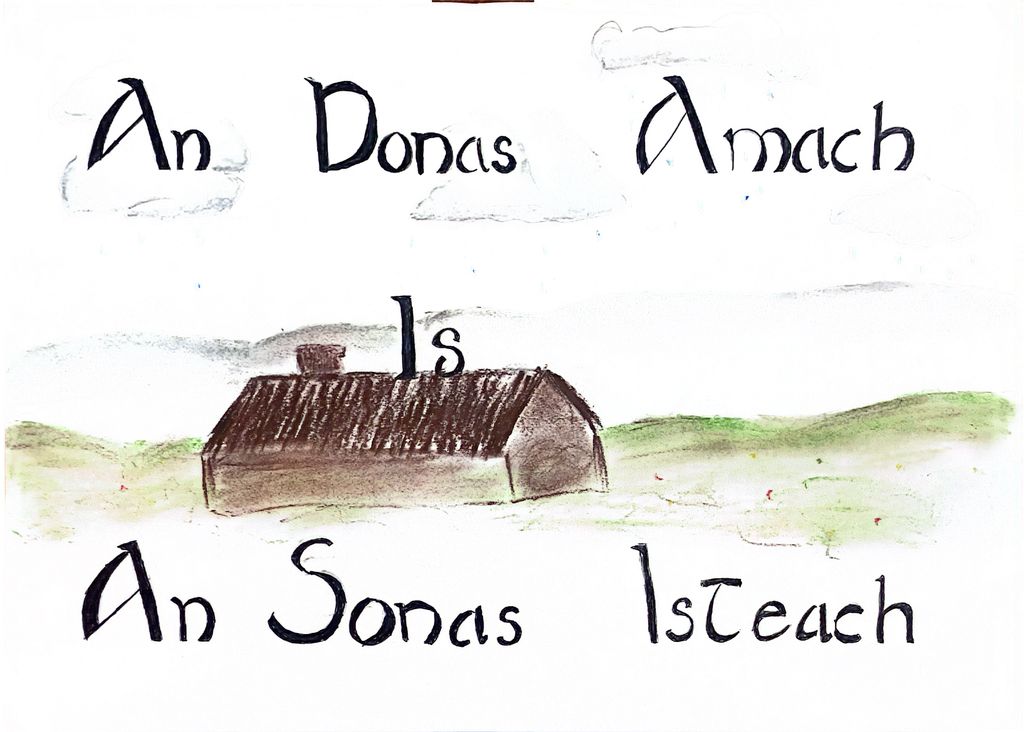 An Donas Amach
Is
An Sonas Isteach